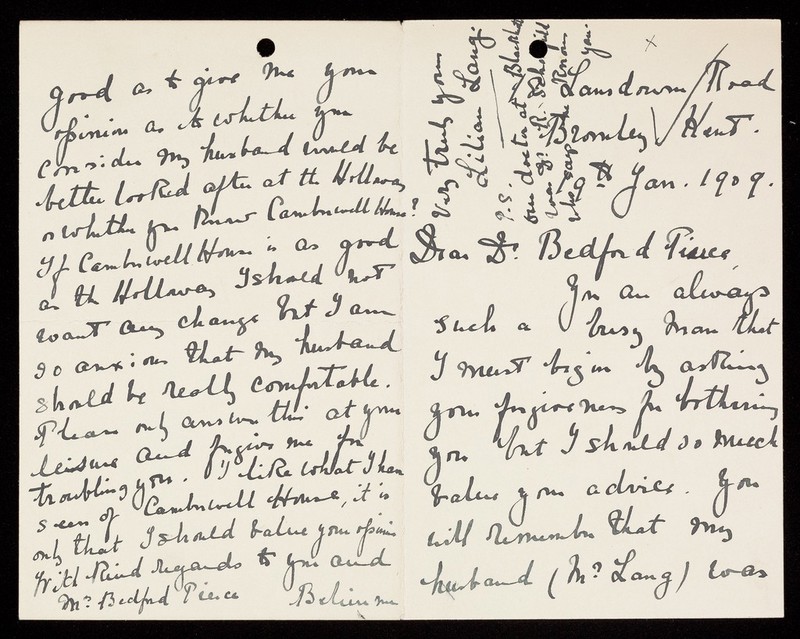 Lansdowne Road
Bromley Kent.
9th Jan. 1909.
Dear Dr. Bedford Pierce,
You are always
such a busy man that
I must begin by asking
your forgiveness for bothering
you but I should so much
value your advice. You
will remember that my
husband (Mr Lang) was
good as to give me your
opinion as to whether you
consider my husband would be
better looked after at the Holloway
or whether you know Camberwell House?
If Camberwell House is as good
as the Holloway I should not
want any change but I am
so anxious that my husband
should be really comfortable.
Please only answer this at your
leisure and forgive me for
troubling you. I like what I have
seen of Camberwell House, it is
only that I should value your opinion
With kind regards to you and
Mrs Bedford Pierce Believe me
Very truly yours
Lilian Lang.
P.S.
Our doctor at Blackheath
was Dr. R. 
who says he knows
you.